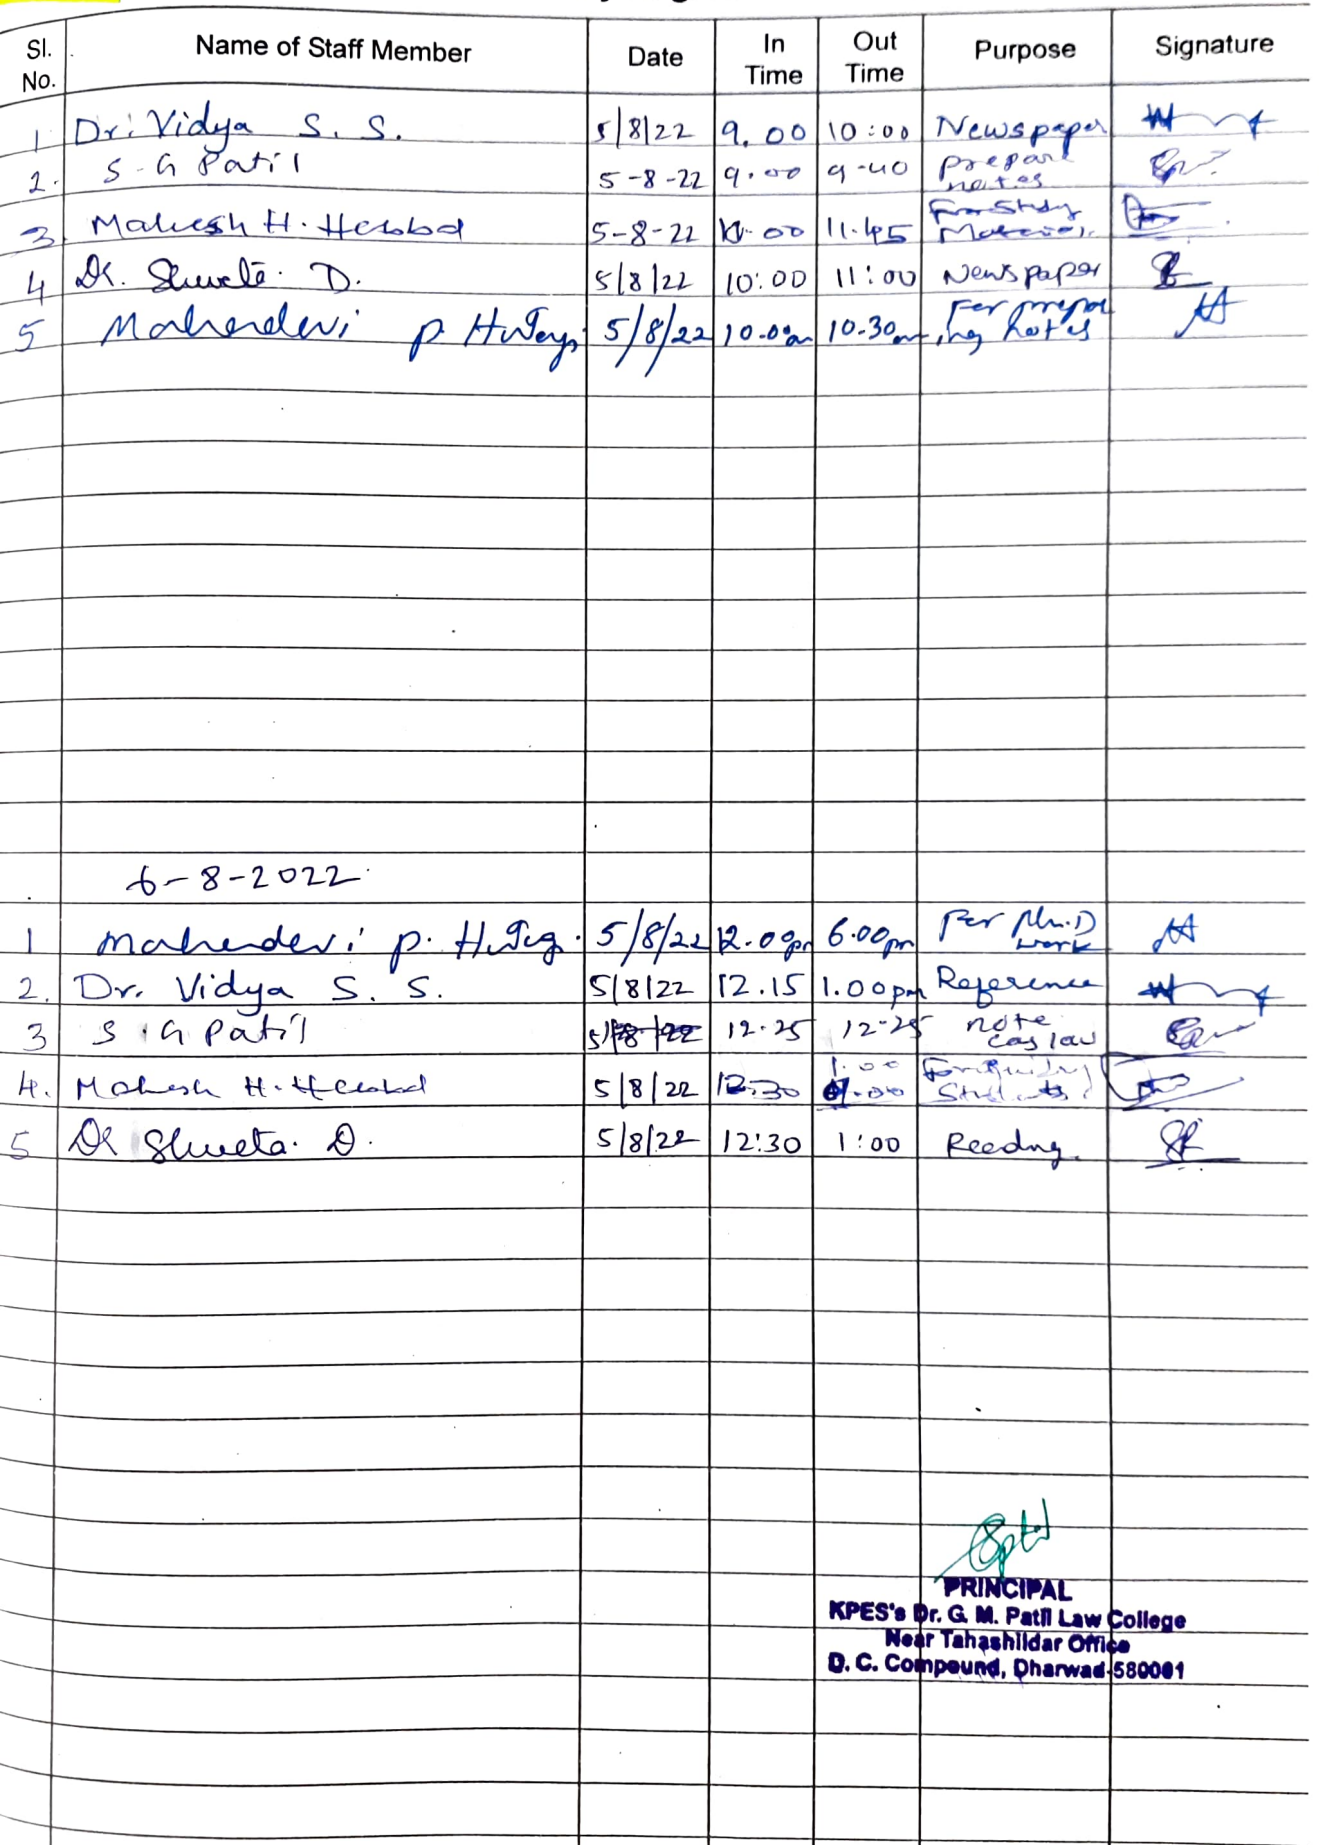 Sl. No. Name of Staff Member Date In Time Out Time Purpose Signature
1 Dr. Vidya S. S. 5/8/22 9.00 10:00 Newspaper
2. S-G Patil 5-8-22 9.00 9-40 prepare notes
3. Mahesh H. 5-8-22 11.45 For Study
4 Dr. Shweta. D. 5/8/22 10:00 11:00 Newspaper
5 Mahendevi P 5/8/22 10.00am 10.30am For prepar ing notes
6-8-2022
1 Mahendevi P. 5/8/22 12.00pm 6.00pm For Ph.D work
2. Dr. Vidya S. S. 5/8/22 12.15 1.00pm Reference
3 S.G Patil 5/8/22 12.25 12-25 note cas law
4. Mahesh H. 5/8/22 12.30 1.00 Students
5 Dr Shweta. D. 5/8/22 12:30 1:00 Reedng.
PRINCIPAL
KPES's Dr. G. M. Patil Law College
Near Tahashildar Office
D. C. Compound, Dharwad-580001